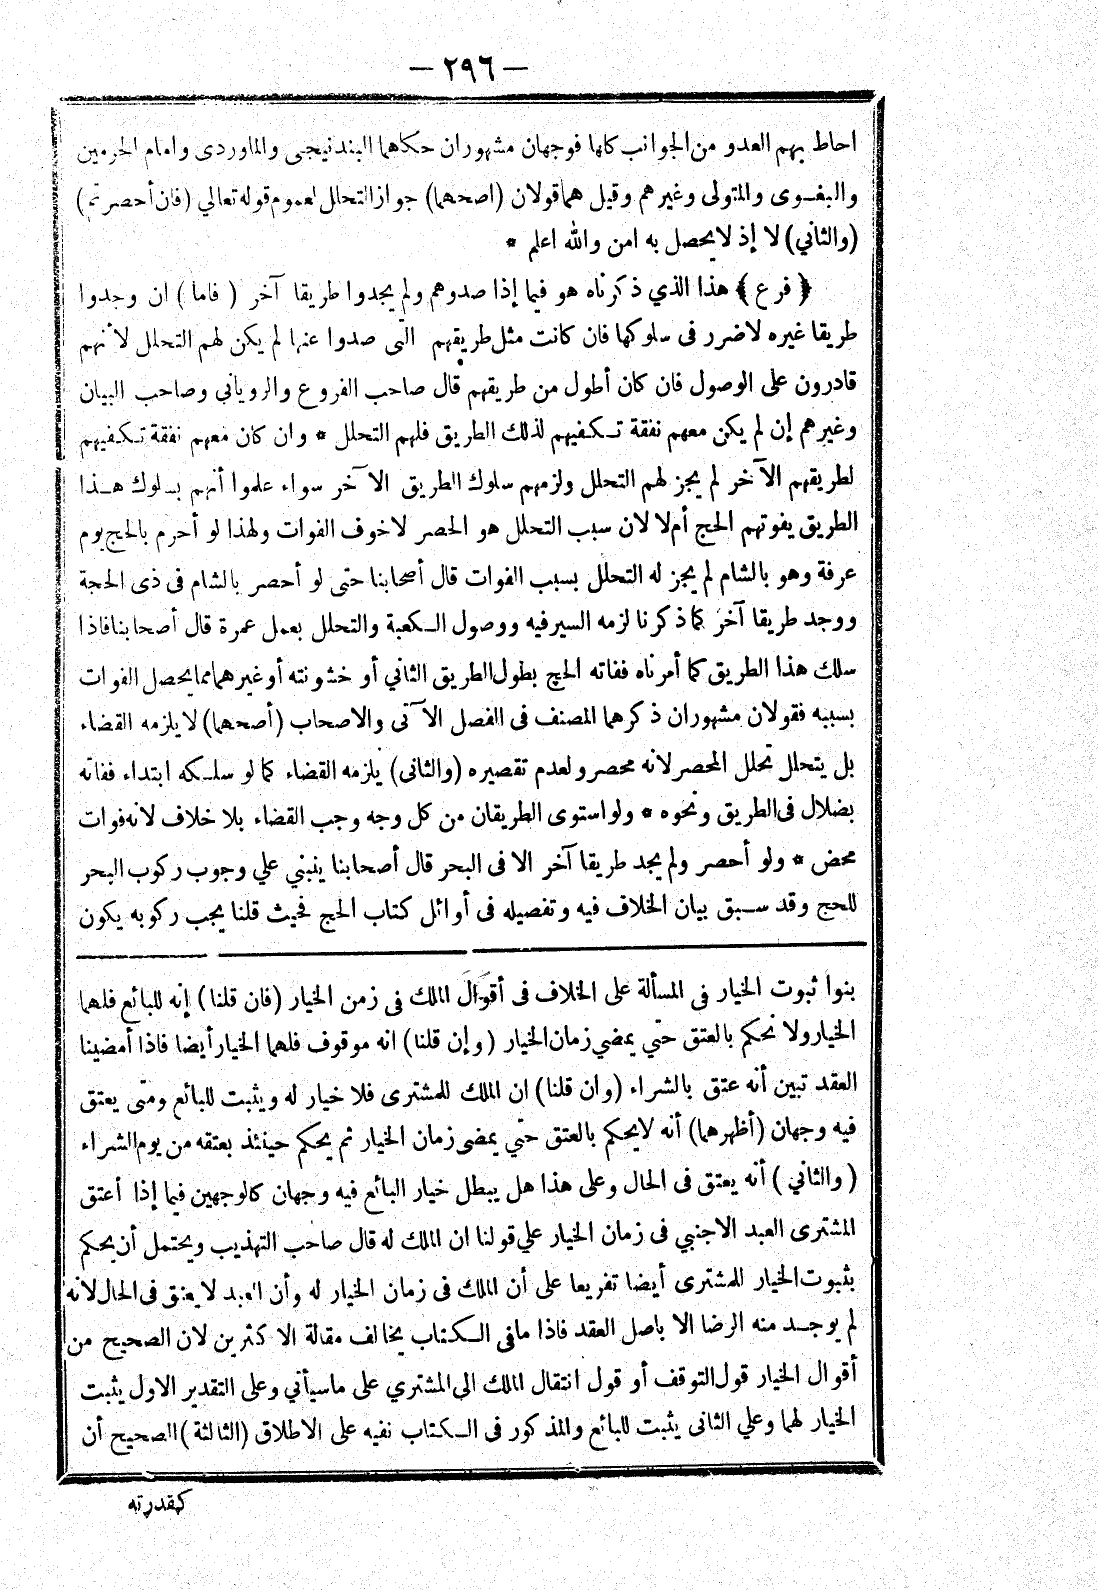 — ٢٩٦ —
احاط بهم العدو من الجوانب كلها فوجهان مشهوران حكاهما البندنيجى والماوردى وامام الحرمين
والبغـوى والمتولى وغيرهم وقيل هما قولان (اصحهما) جواز التحلل لعموم قوله تعالي (فان أحصرتم)
(والثاني) لا إذ لا يحصل به امن والله اعلم *
﴿ فرع ﴾ هذا الذي ذكرناه هو فيما إذا صدوهم ولم يجدوا طريقا آخر ( فاما ) ان وجدوا
طريقا غيره لاضرر فى سلوكها فان كانت مثل طريقهم التى صدوا عنها لم يكن لهم التحلل لأنهم
قادرون على الوصول فان كان أطول من طريقهم قال صاحب الفروع والروياني وصاحب البيان
وغيرهم إن لم يكن معهم نفقة تـكـفيهم لذلك الطريق فلهم التحلل * وان كان معهم نفقة تـكـفيهم
لطريقهم الآخر لم يجز لهم التحلل ولزمهم سلوك الطريق الآخر سواء علموا أنهم بسلوك هـذا
الطريق يفوتهم الحج أم لا لان سبب التحلل هو الحصر لا خوف الفوات ولهذا لو أحرم بالحج يوم
عرفة وهو بالشام لم يجز له التحلل بسبب الفوات قال أصحابنا حتى لو أحصر بالشام فى ذى الحجة
ووجد طريقا آخر كما ذكرنا لزمه السير فيه ووصول الـكعبة والتحلل بعمل عمرة قال أصحابنا فاذا
سلك هذا الطريق كما أمرناه ففاته الحج بطول الطريق الثاني أو خشونته أو غيرهما مما يحصل الفوات
بسببه فقولان مشهوران ذكرهما المصنف فى الفصل الآتى والاصحاب (أصحهما) لا يلزمه القضاء
بل يتحلل تحلل المحصر لانه محصر ولعدم تقصيره (والثانى) يلزمه القضاء كما لو سلـكه ابتداء ففاته
بضلال فى الطريق ونحوه * ولو استوى الطريقان من كل وجه وجب القضاء بلا خلاف لانه فوات
محض * ولو أحصر ولم يجد طريقا آخر الا فى البحر قال أصحابنا ينبني علي وجوب ركوب البحر
للحج وقد سـبق بيان الخلاف فيه وتفصيله فى أوائل كتاب الحج فحيث قلنا يجب ركوبه يكون
بنوا ثبوت الخيار فى المسألة على الخلاف فى أقوال الملك فى زمن الخيار (فان قلنا) إنه للبائع فلهما
الخيار ولا نحكم بالعتق حتي يمضي زمان الخيار (وإن قلنا) انه موقوف فلهما الخيار أيضا فاذا أمضينا
العقد تبين أنه عتق بالشراء (وان قلنا) ان الملك للمشترى فلا خيار له ويثبت للبائع ومتى يعتق
فيه وجهان (أظهرهما) أنه لا يحكم بالعتق حتي يمضى زمان الخيار ثم يحكم حينئذ بعتقه من يوم الشراء
(والثاني ) أنه يعتق فى الحال وعلى هذا هل يبطل خيار البائع فيه وجهان كالوجهين فيما إذا أعتق
المشترى العبد الاجنبي فى زمان الخيار علي قولنا ان الملك له قال صاحب التهذيب ويحتمل أن يحكم
بثبوت الخيار للمشترى أيضا تفريعا على أن الملك فى زمان الخيار له وأن العبد لا يعتق فى الحال لانه
لم يوجـد منه الرضا الا باصل العقد فاذا مافى الـكتاب يخالف مقالة الاكثرين لان الصحيح من
أقوال الخيار قول التوقف أو قول انتقال الملك الى المشتري على ماسيأتي وعلى التقدير الاول يثبت
الخيار لهما وعلي الثانى يثبت للبائع والمذكور فى الـكتاب نفيه على الاطلاق (الثالثة) الصحيح أن
كهقدرته